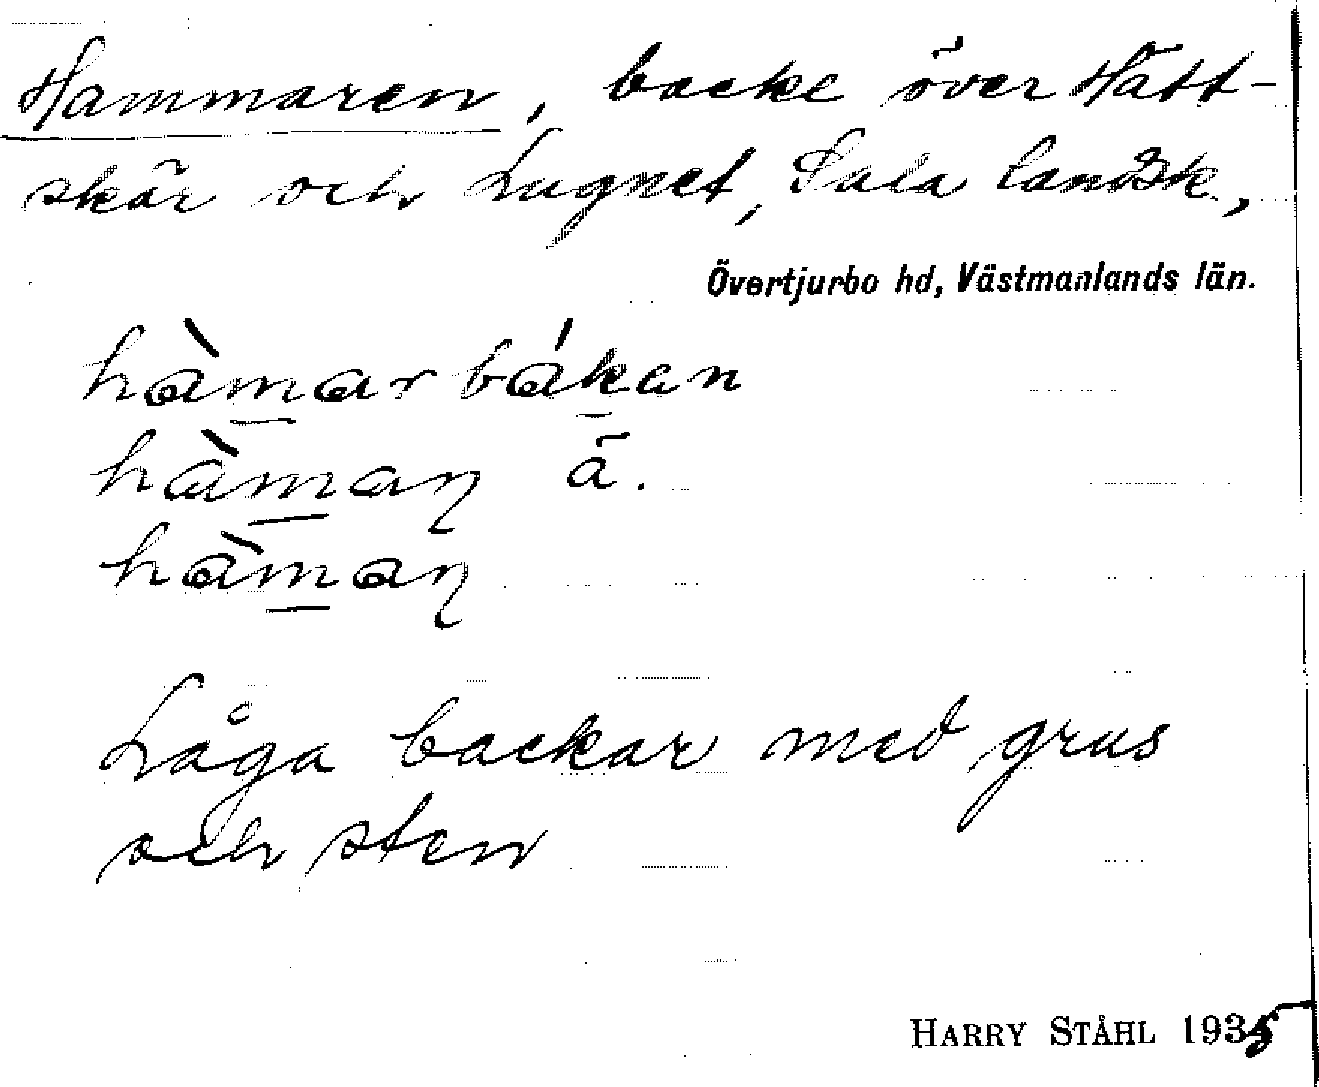 Hammaren, backe över Hätt-
skär och Lugnet, Sala landsk.,
Övertjurbo hd, Västmanlands län.
hàmar bákan
hàmaη ä.
hàmaη
Låga backar med grus
och sten
HARRY STÅHL 1935